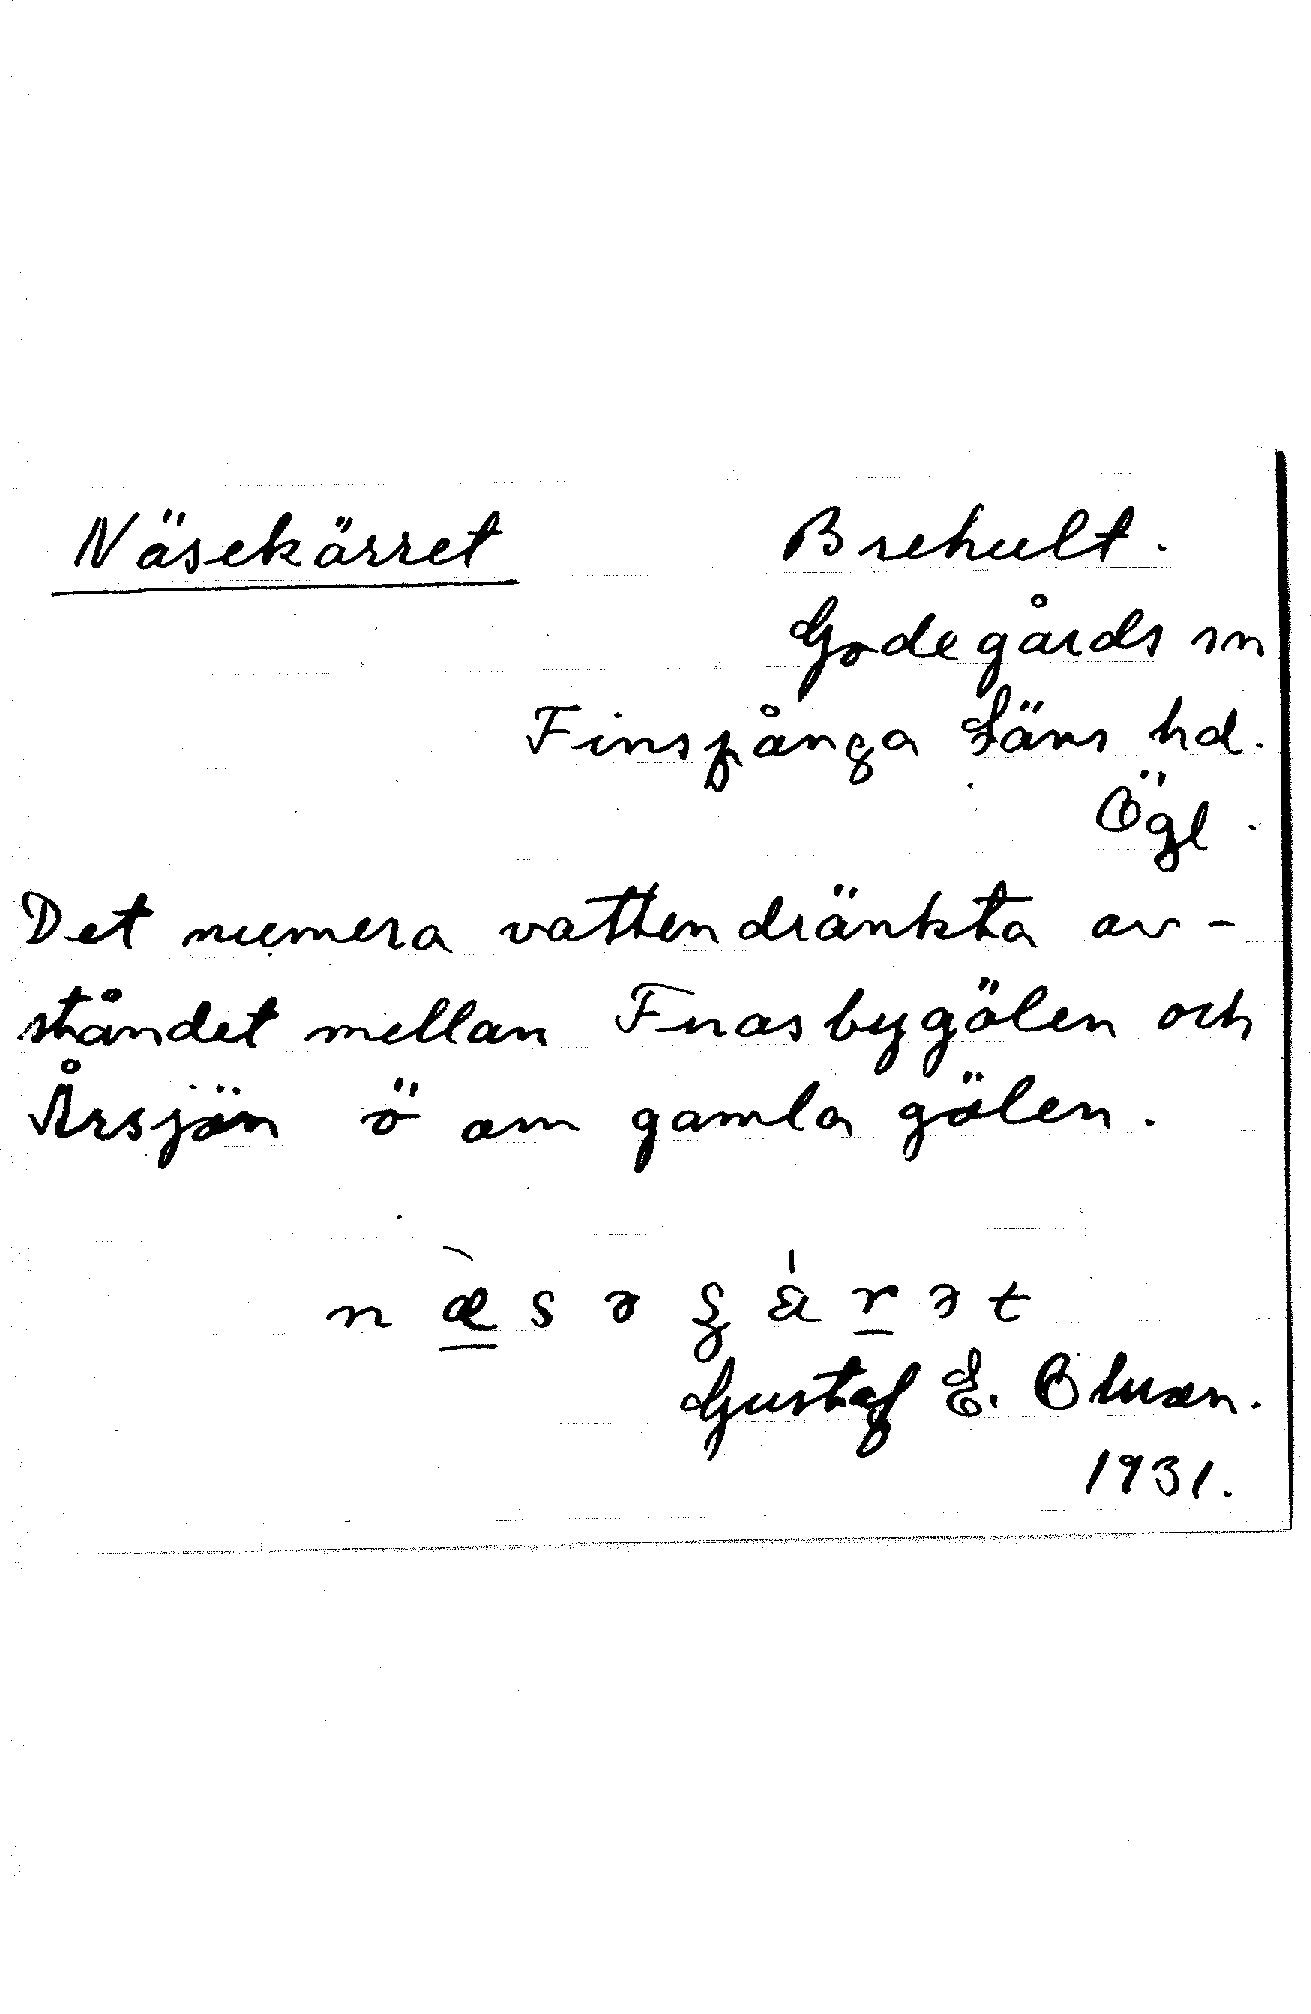 Näsekärret Brehult.
Godegårds sn
Finspånga Läns hd.
Ögl.
Det numera vattendränkta av-
ståndet mellan Fnasbygölen och
Årsjön ö om gamla gölen.
Gustaf E.
1931.